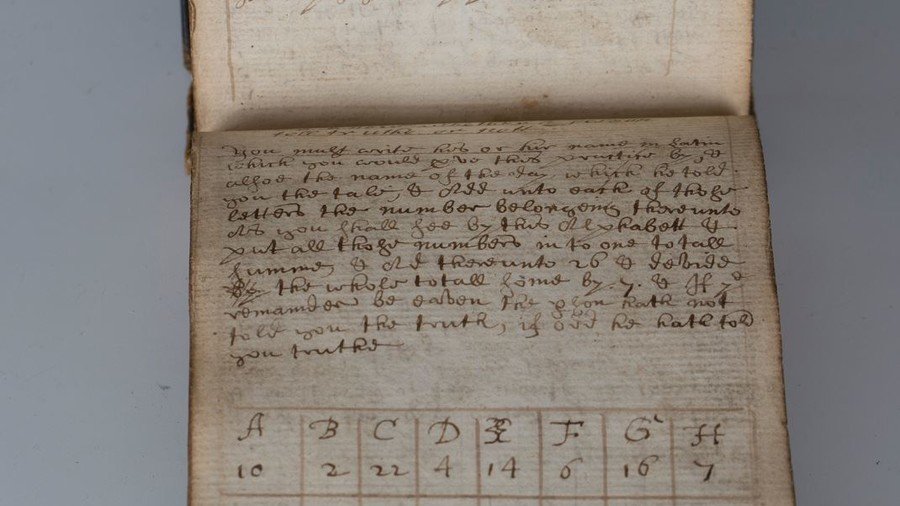 tell truthe or Nott
You must write his or her name in Latin
which you would prve this practice by, &
allsoe the name of the day which he told
you the tale, & Add unto each of those
letters the number belongeing thereunto
As you shall see by this Alphabett &
put all those numbers in to one totall
summe, & Ad thereunto 26 & devide
the whole totall some by .7. & If ye
remainder be eaven the pson hath not
told you the truth, if odd he hath told
you truthe
A B C D E F G H
10 2 22 4 14 6 16 7